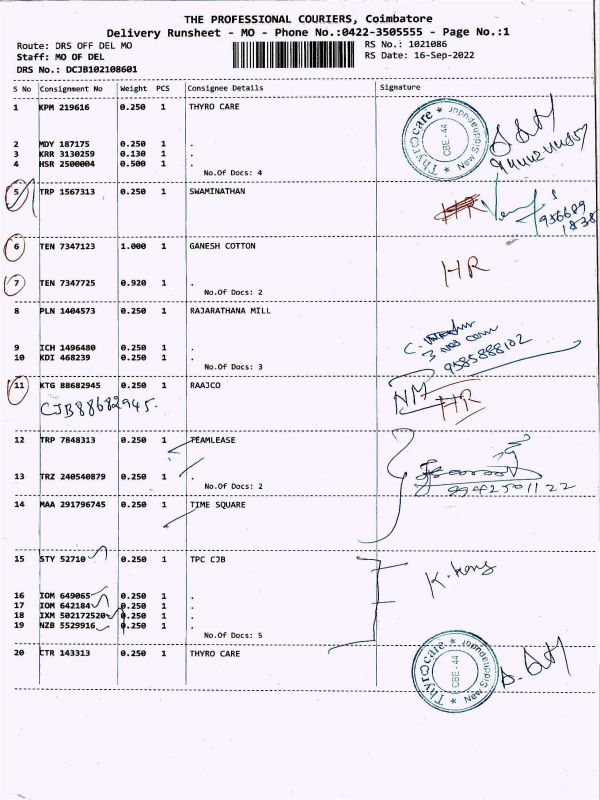 THE PROFESSIONAL COURIERS, Coimbatore
Delivery Runsheet - MO - Phone No.:0422-3505555 - Page No.:1
Route: DRS OFF DEL MO RS No.: 1021086
Staff: MO OF DEL RS Date: 16-Sep-2022
DRS No.: DCJB102108601
S No Consignment No Weight PCS Consignee Details Signature
1 KPM 219616 0.250 1 THYRO CARE
Thyrocare CBE-44 New Siddhapudur
2 MDY 187175 0.250 1 .
3 KRR 3130259 0.130 1 .
4 HSR 2500004 0.500 1 .
No.Of Docs: 4
5 TRP 1567313 0.250 1 SWAMINATHAN
HR
956689
1838
6 TEN 7347123 1.000 1 GANESH COTTON
HR
7 TEN 7347725 0.920 1 .
No.Of Docs: 2
8 PLN 1404573 0.250 1 RAJARATHANA MILL
9 ICH 1496480 0.250 1 .
10 KDI 468239 0.250 1 .
9585888102
No.Of Docs: 3
11 KTG 88682945 0.250 1 RAAJCO
NM HR
CJB88682945.
12 TRP 7848313 0.250 1 TEAMLEASE
13 TRZ 240540879 0.250 1 .
No.Of Docs: 2
9942501122
14 MAA 291796745 0.250 1 TIME SQUARE
15 STY 52710 0.250 1 TPC CJB
16 IOM 649065 0.250 1 .
17 IOM 642184 0.250 1 .
18 IXM 502172520 0.250 1 .
19 NZB 5529916 0.250 1 .
No.Of Docs: 5
20 CTR 143313 0.250 1 THYRO CARE
Thyrocare CBE-44 New Siddhapudur